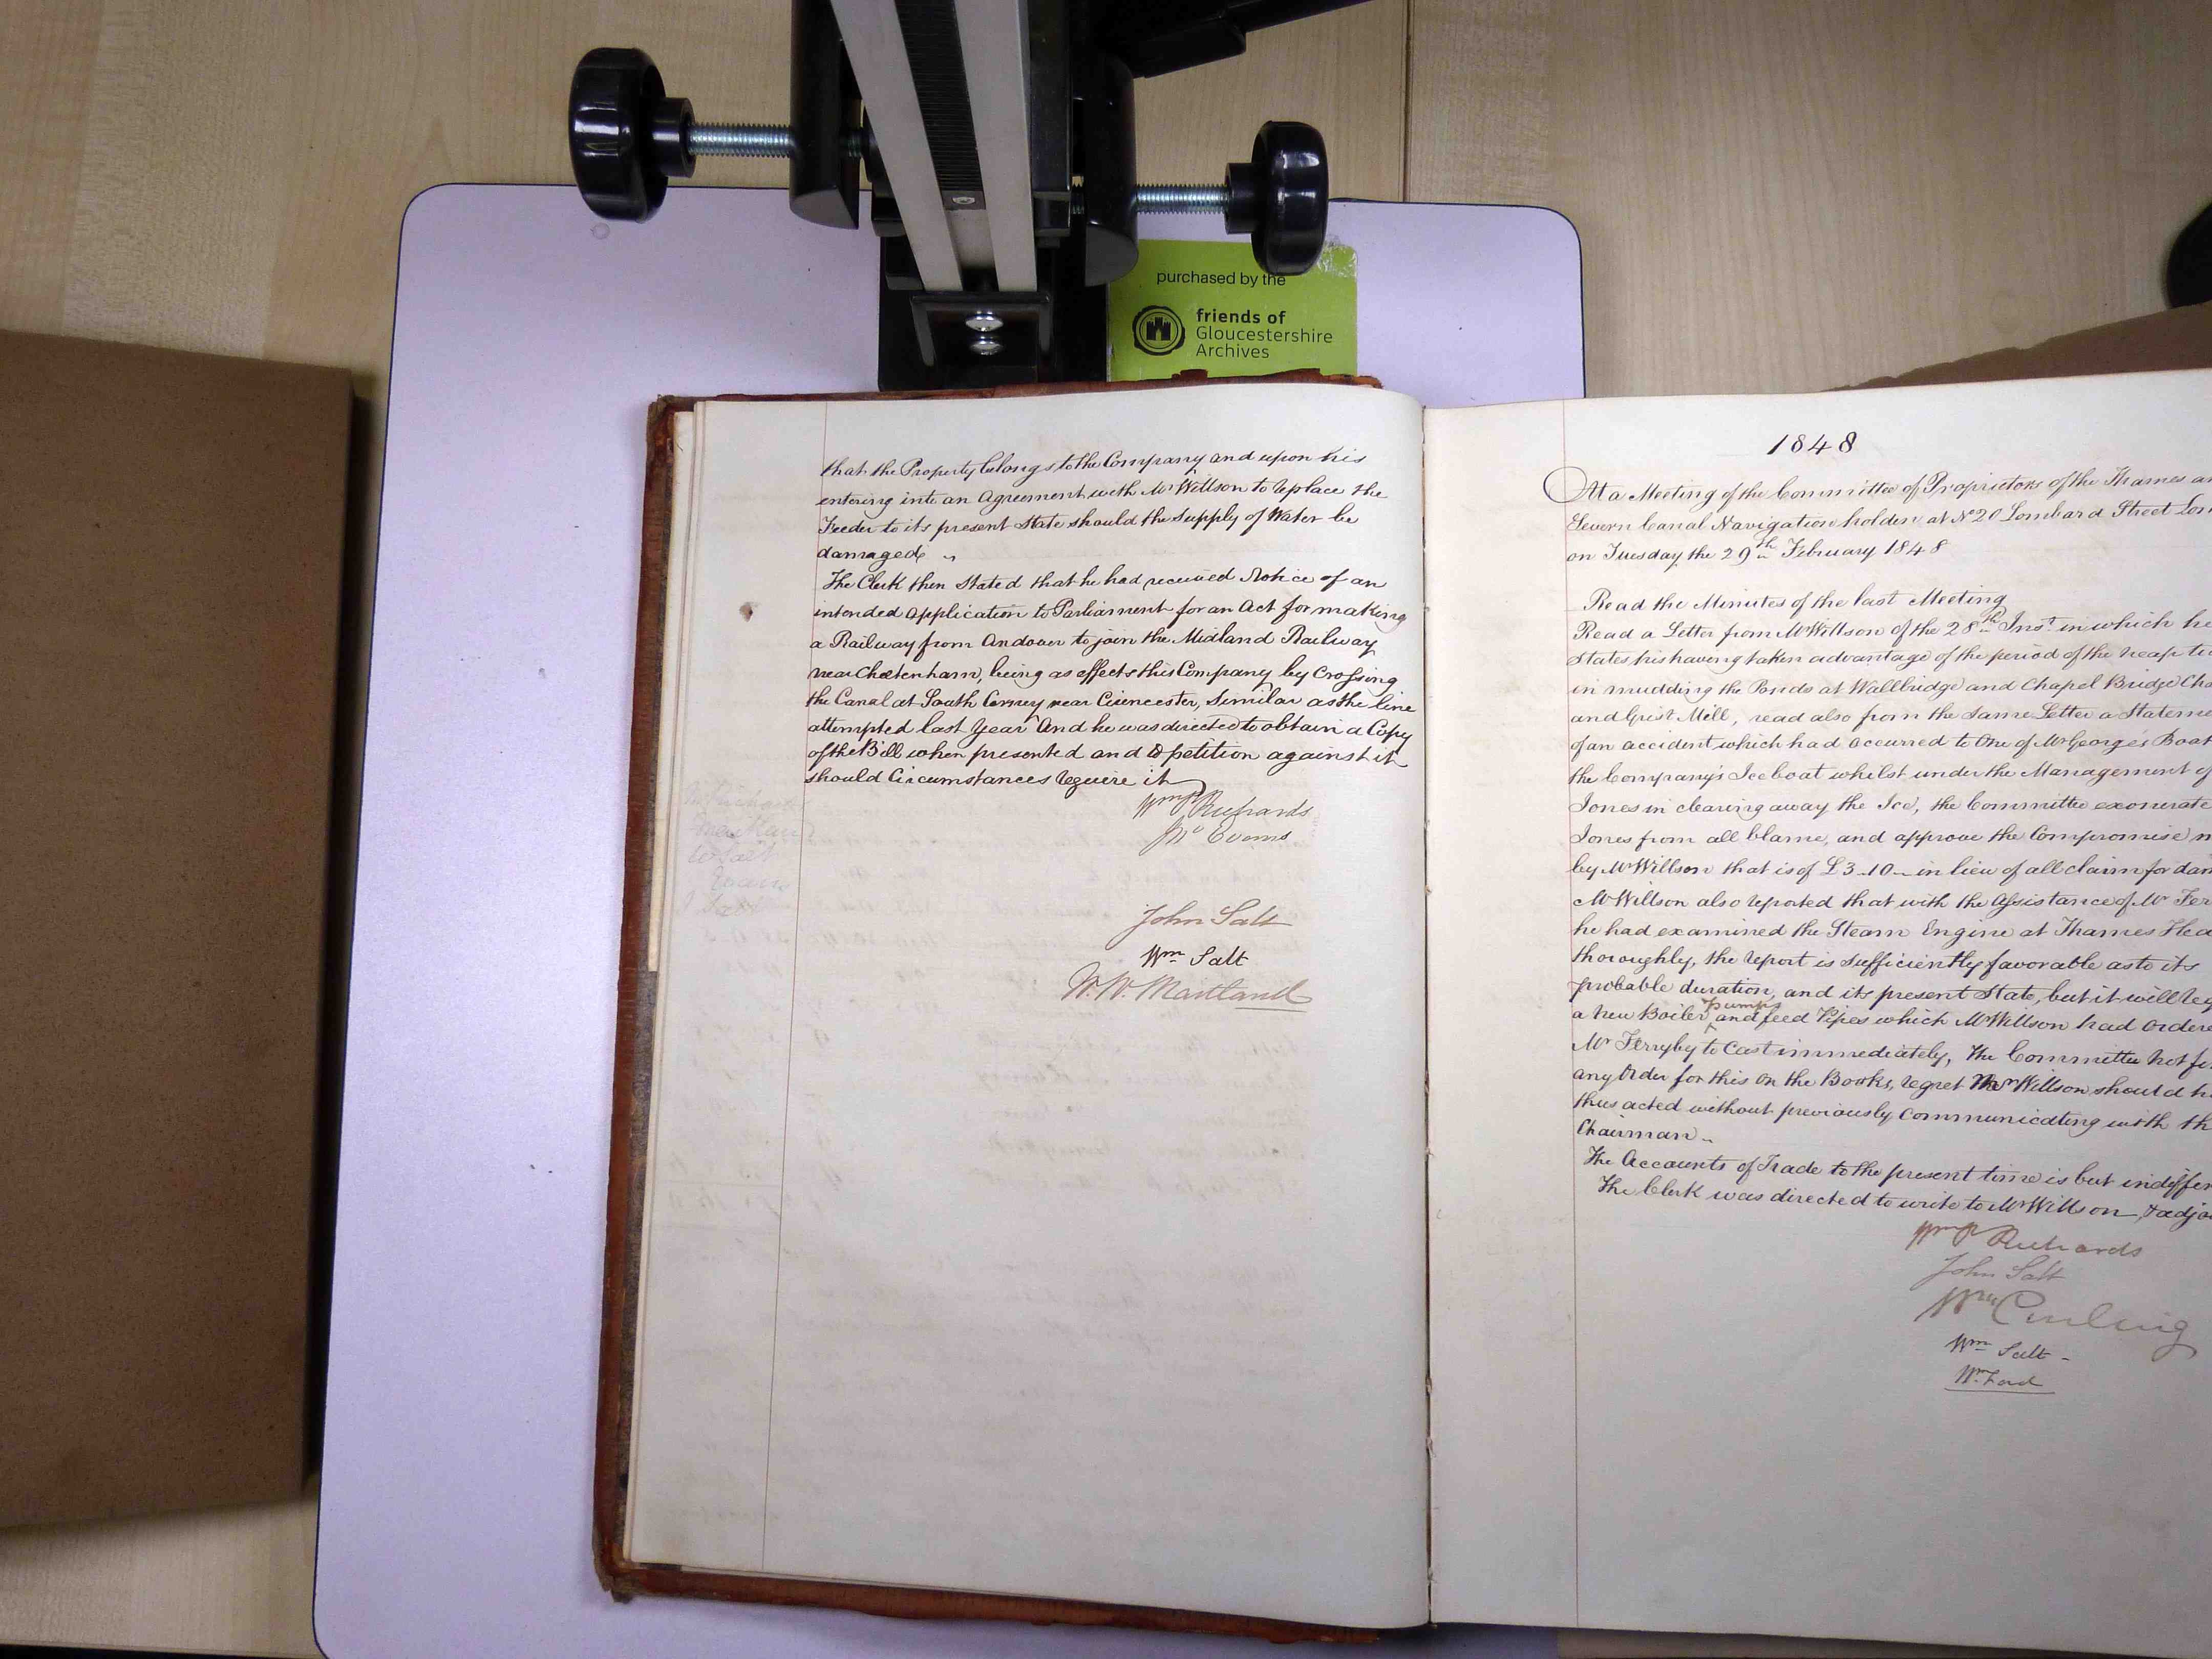 purchased by the
friends of
Gloucestershire
Archives
that the Property belongs to the Company and upon his
entering into an Agreement with Mr Willson to replace the
Feeder to its present State should the Supply of Water be
damaged
The Clerk then Stated that he had received Notice of an
intended Application to Parliament for an Act for making
a Railway from Andover to join the Midland Railway
near Cheltenham, being as effects this Company by Crossing
the Canal at South Cerney near Cirencester, Similar as the line
attempted last Year And he was directed to obtain a Copy
of the Bill when presented and to petition against it
should Circumstances require it
Wm P Richards
Jno Evans
John Salt
Wm Salt
W. W. Maitland
1848
At a Meeting of the Committee of Proprietors of the Thames an
Severn Canal Navigation holden at No 20 Lombard Street Lon
on Tuesday the 29th February 1848
Read the Minutes of the last Meeting
Read a Letter from Mr Willson of the 28th Inst in which he
States his having taken advantage of the period of the neap ti
in mudding the Ponds at Wallbridge and Chapel Bridge Cha
and Grist Mill, read also from the same Letter a Stateme
of an accident which had occurred to One of Mr George's Boat
the Company's Ice boat whilst under the Management of
Jones in clearing away the Ice, the Committee exonerate
Jones from all blame, and approve the Compromise m
by Mr Willson that is of £3-10- in lieu of all claim for dam
Mr Willson also reported that with the Assistance of Mr Fer
he had examined the Steam Engine at Thames Hea
thoroughly, the report is sufficiently favorable as to its
probable duration, and its present State, but it will req
a new Boiler, pumps and feed Pipes which Mr Willson had Ordere
Mr Ferryby to Cast immediately, The Committee not fi
any Order for this on the Books, regret Mr Willson should h
thus acted without previously Communicating with th
Chairman
The Accounts of Trade to the present time is but indiffer
The Clerk was directed to write to Mr Willson, & adjo
Wm P Richards
John Salt
Wm Curling
Wm Salt
Wm Ford